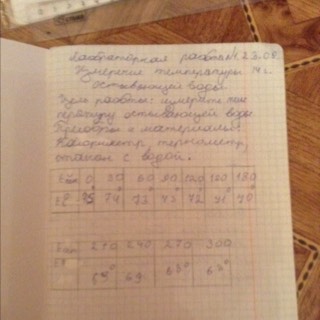 Лабораторная работа №1. 23.08.
Измерение температуры
остывающей воды.
Цель работы: измерить тем
пературу остывающей воды
Приборы и материалы:
Калориметр, термометр,
стакан с водой.
0 30 60 90 120 150 180
75 74 73 73 72 71° 70
210 240 270 300
69° 69 68° 67°